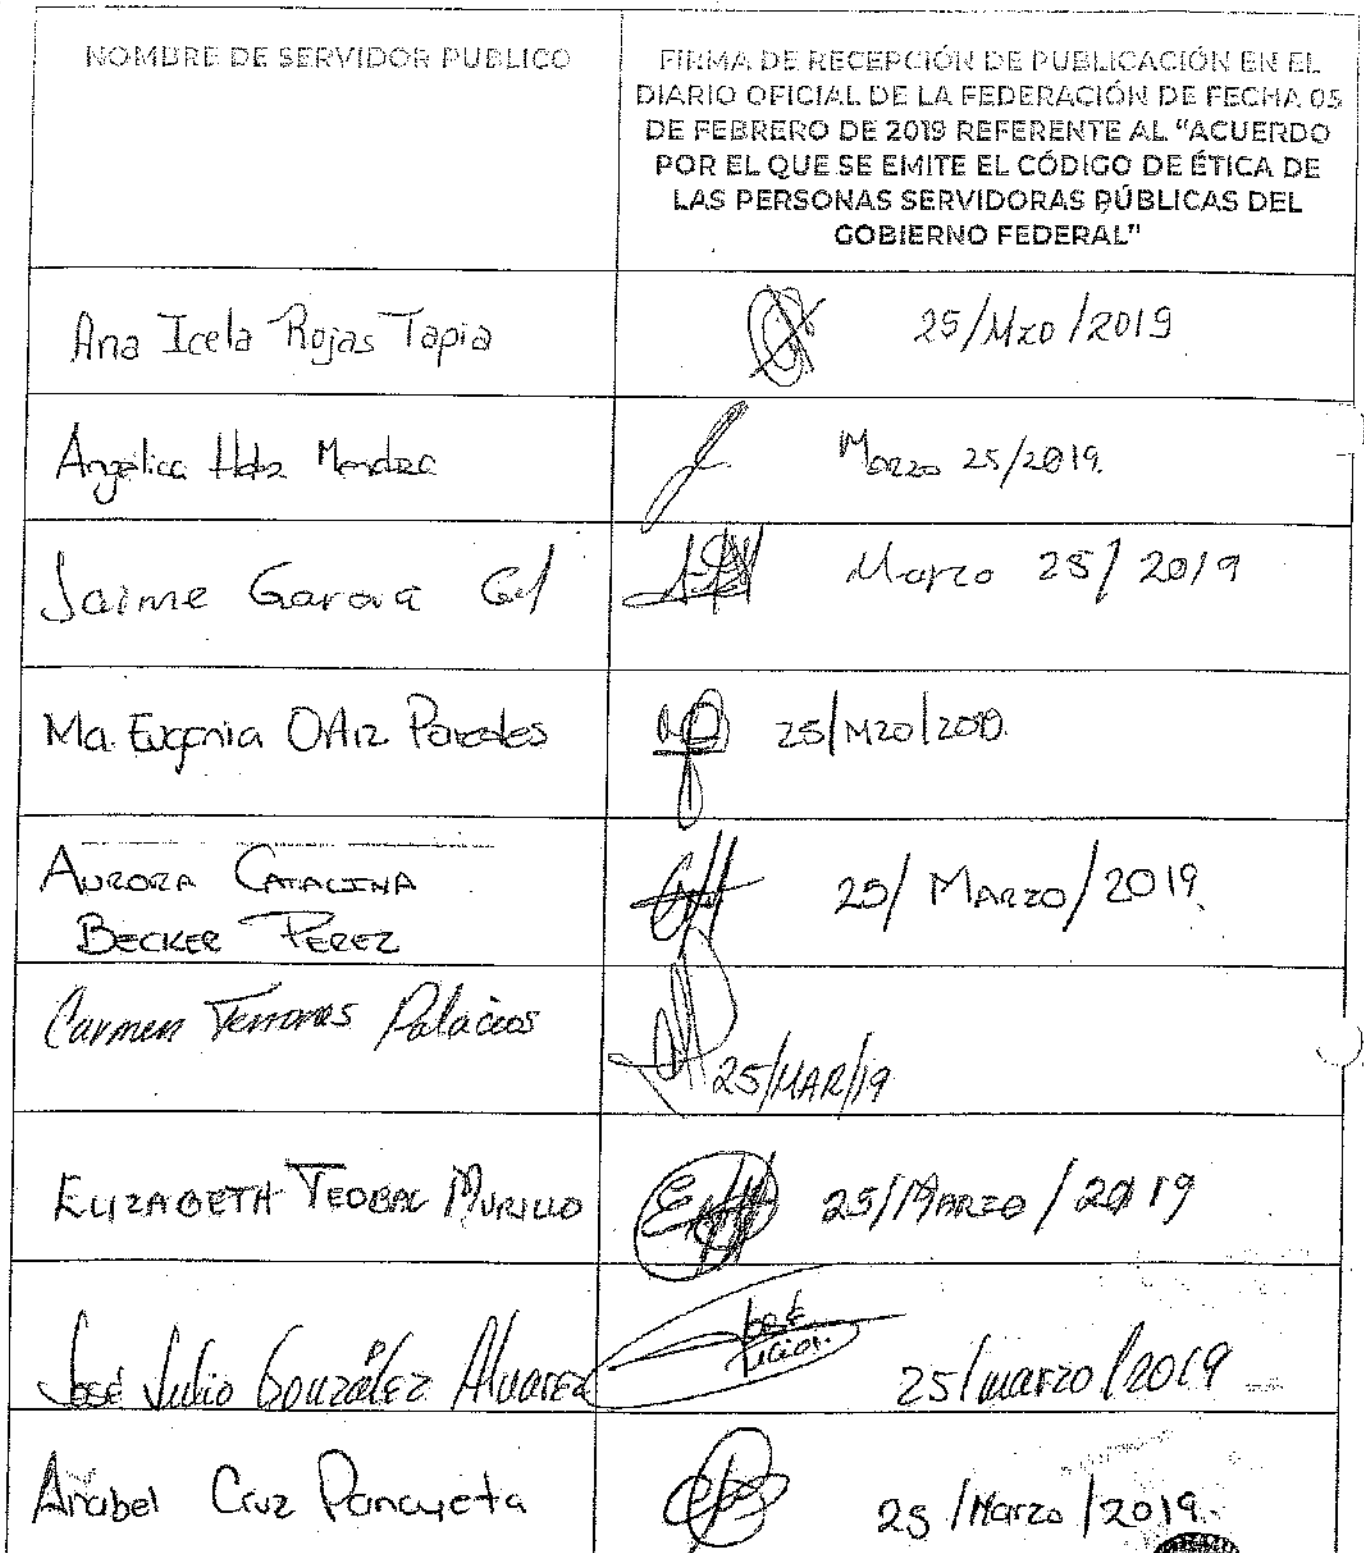 NOMBRE DE SERVIDOR PUBLICO
FIRMA DE RECEPCIÓN DE PUBLICACIÓN EN EL
DIARIO OFICIAL DE LA FEDERACIÓN DE FECHA 05
DE FEBRERO DE 2019 REFERENTE AL "ACUERDO
POR EL QUE SE EMITE EL CÓDIGO DE ÉTICA DE
LAS PERSONAS SERVIDORAS PÚBLICAS DEL
GOBIERNO FEDERAL"
Ana Icela Rojas Tapia
25/Mzo/2019
Angelica Mendoza
Marzo 25/2019.
Jaime
Marzo 25/2019
Ma. Eugenia Ortiz Paredes
25/Mzo/
AURORA CATALINA
BECKER PEREZ
25/MARZO/2019.
Carmen Terrones Palacios
25/MAR/19
ELIZABETH MURILLO
25/MARZO/2019
José Julio González Alvarez
25/marzo/2019
Anabel Cruz
25/Marzo/2019.